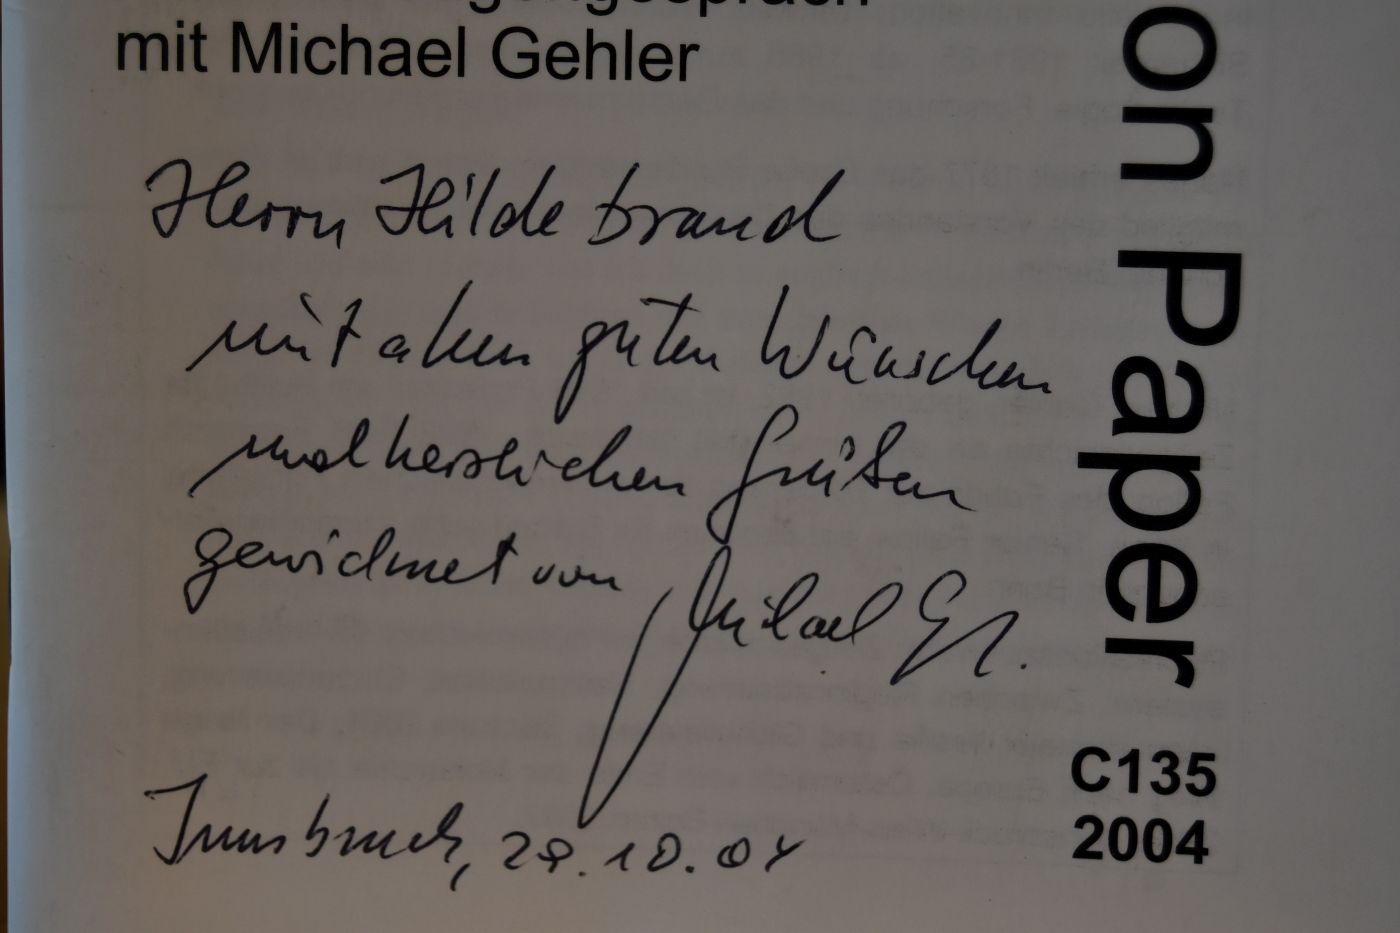 mit Michael Gehler
Herrn Hildebrand
mit allen guten Wünschen
und herzlichen Grüßen
gewidmet von Michael
Innsbruck, 29.10.04
on Paper
C135
2004